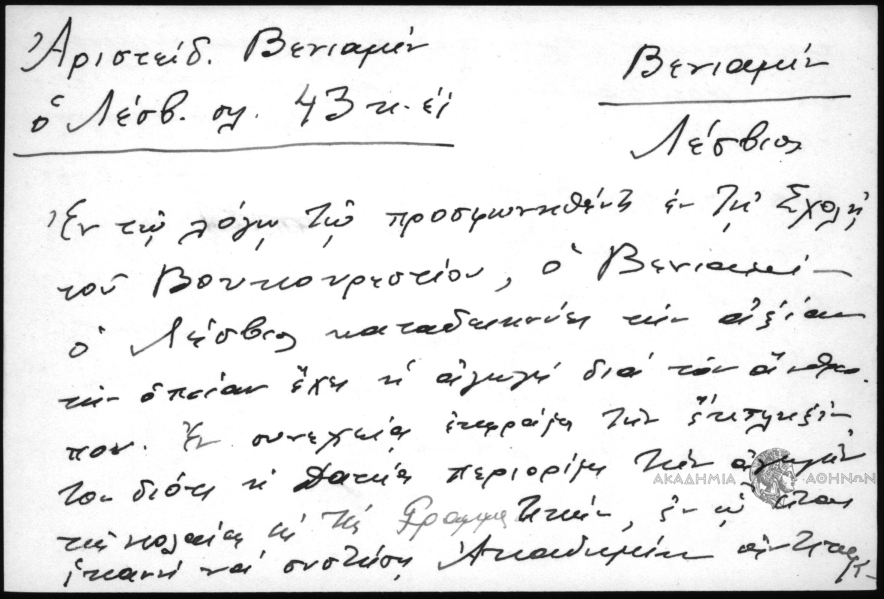 Ἀριστείδ. Βενιαμίν
ὁ Λέσβ. σλ. 43 κ. ἑξ
Βενιαμίν
Λέσβιος
Ἐν τῷ λόγῳ τῷ προσφωνηθέντι ἐν τῇ Σχολῇ
τοῦ Βουκουρεστίου, ὁ Βενιαμὶν
ὁ Λέσβιος καταδεικνύει τὴν ἀξίαν
τὴν ὁποίαν ἔχει ἡ ἀγωγὴ διὰ τὸν ἄνθρω-
πον. Ἐν συνεχείᾳ ἐκφράζει τὴν ἔκπληξίν
του διότι ἡ Δακία περιορίζει τὴν ἀγωγὴν
τῆς νεολαίας εἰς τὴν Γραμματικήν, ἐν ᾧ εἶναι
ἱκανὴ νὰ συστήσῃ Ἀκαδημίαν
ΑΚΑΔΗΜΙΑ ΑΘΗΝΩΝ